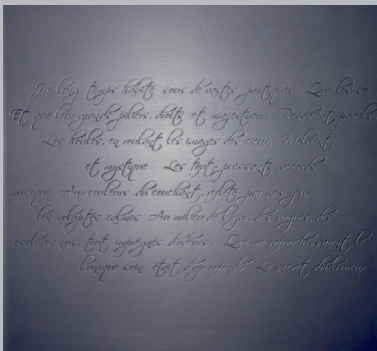 J'ai long temps habité sous de vastes portiques Que les so
Et que leurs grands piliers, droits et majestueux, Rendaient pareils,
Les houles, en roulant les images des cieux, Mêlaient
et mystique Les tout-puissants accords
musique Aux couleurs du couchant reflété par mes yeux
les voluptés calmes Au milieu de l'azur, des vagues, des
esclaves nus, tout imprégnés d'odeurs, Qui me rafraîchissaient le
l'unique soin était d'approfondir Le secret douloureux